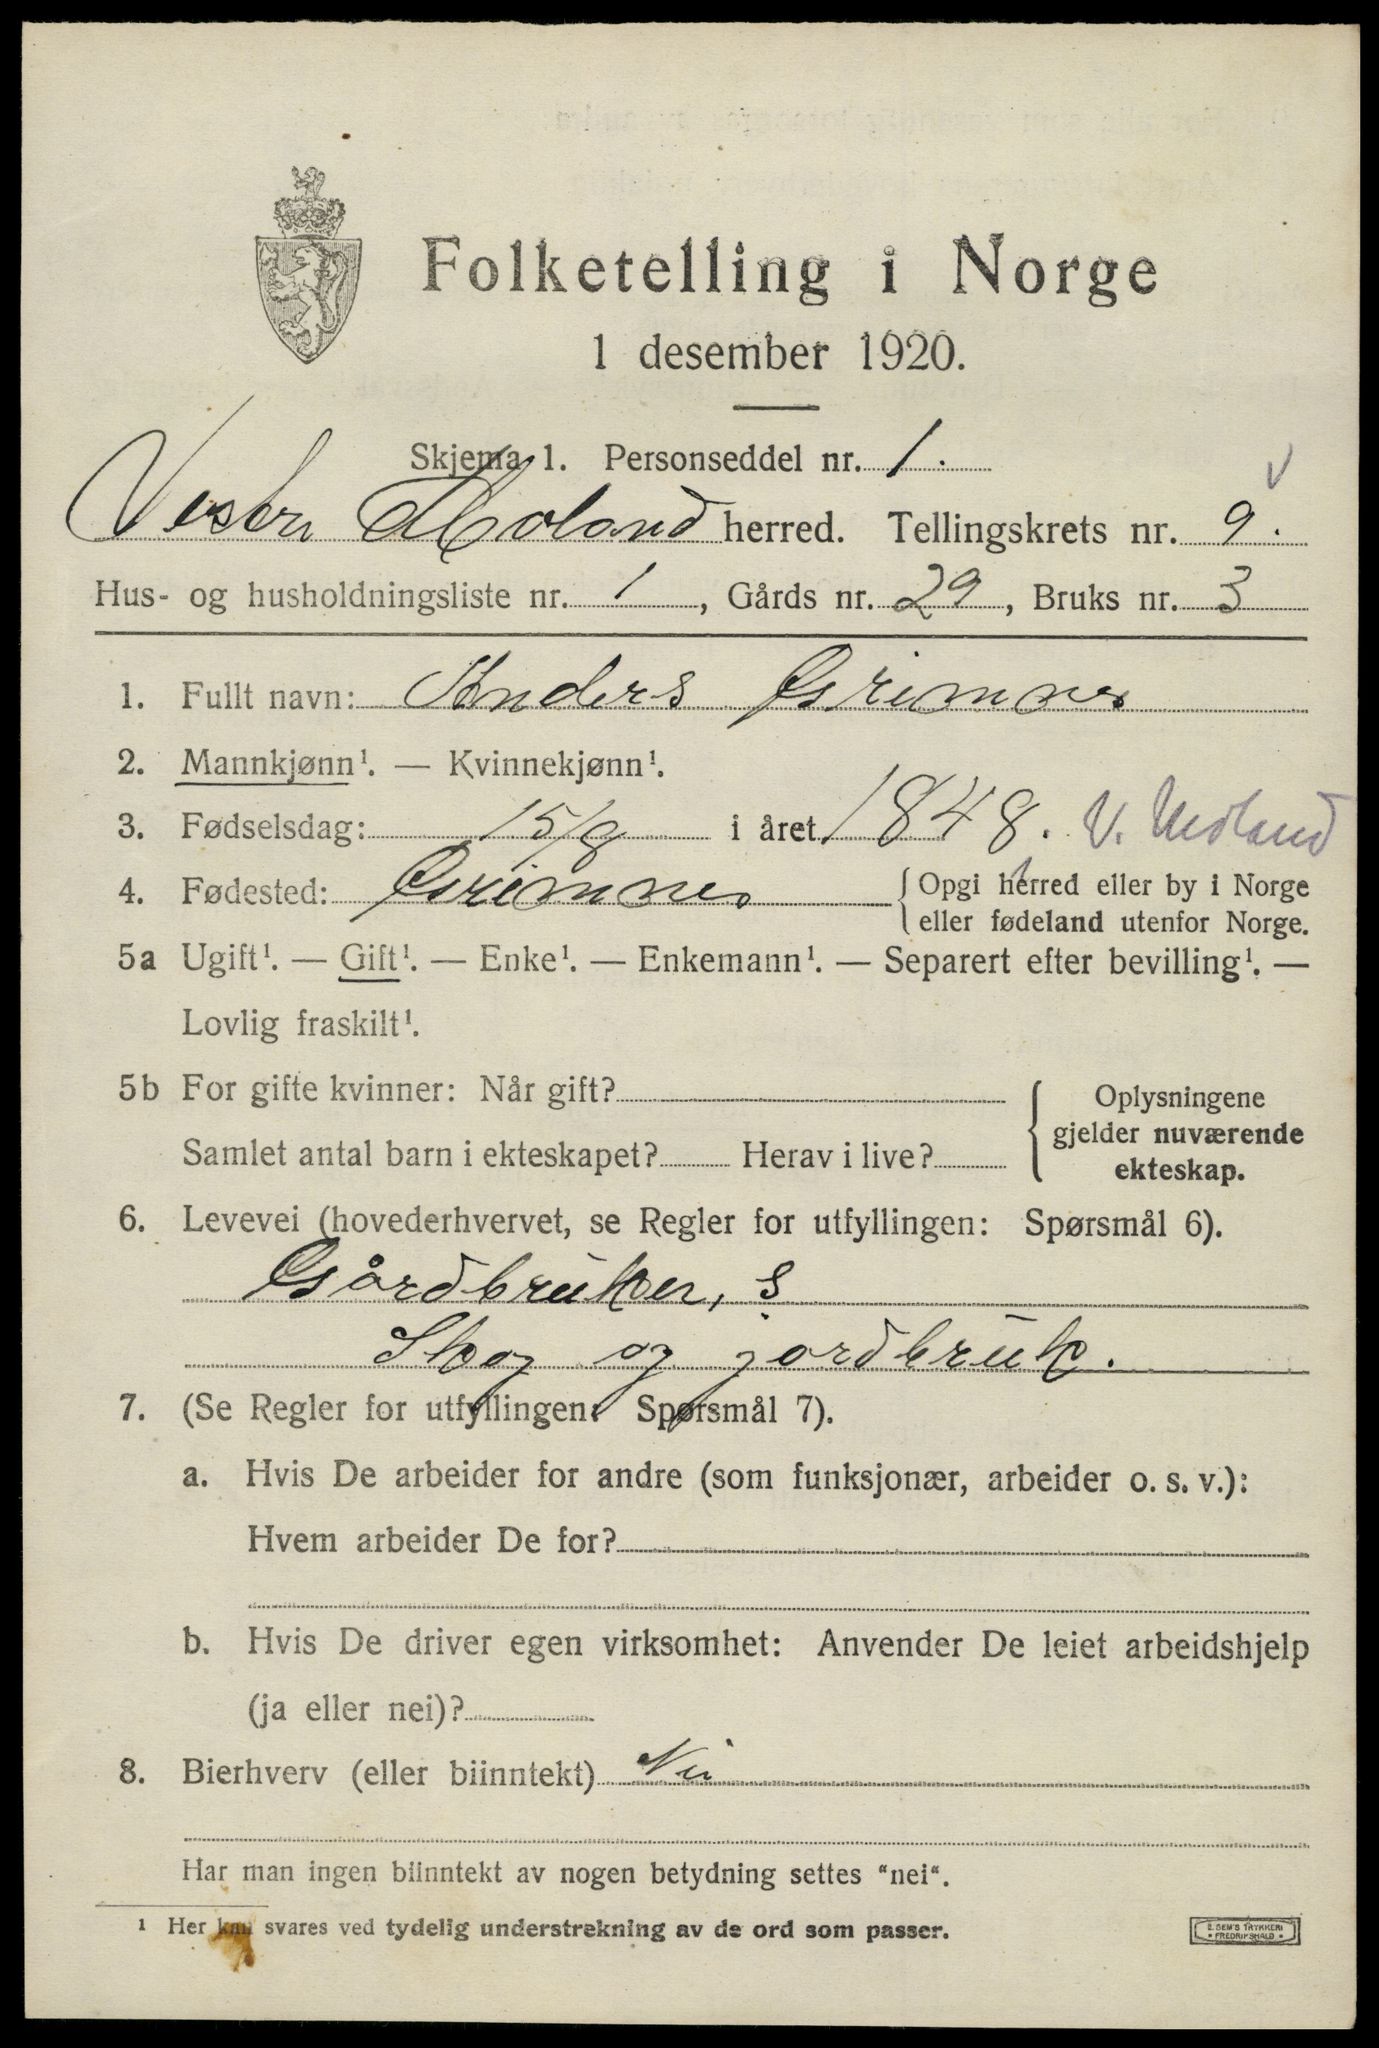 Folketelling i Norge
1 desember 1920.
Skjema 1. Personseddel nr. 1.
Vestre Moland herred. Tellingskrets nr. 9. v
Hus- og husholdningsliste nr. 1, Gårds nr. 29, Bruks nr. 3
1. Fullt navn: Anders Grimnes
2. Mannkjønn¹. — Kvinnekjønn¹.
3. Fødselsdag: 15/8 i året 1848. V. Moland
4. Fødested: Grimnes { Opgi herred eller by i Norge
eller fødeland utenfor Norge.
5a Ugift¹. — Gift¹. — Enke¹. — Enkemann¹. — Separert efter bevilling¹. —
Lovlig fraskilt¹.
5b For gifte kvinner: Når gift? { Oplysningene
gjelder nuværende
Samlet antal barn i ekteskapet? Herav i live?
ekteskap.
6. Levevei (hovederhvervet, se Regler for utfyllingen: Spørsmål 6).
Gårdbruker, S
Skog og jordbruk.
7. (Se Regler for utfyllingen: Spørsmål 7).
a. Hvis De arbeider for andre (som funksjonær, arbeider o. s. v.):
Hvem arbeider De for?
b. Hvis De driver egen virksomhet: Anvender De leiet arbeidshjelp
(ja eller nei)?
8. Bierhverv (eller biinntekt) Nei
Har man ingen biinntekt av nogen betydning settes "nei".
¹ Her kan svares ved tydelig understrekning av de ord som passer.
E. SEM'S TRYKKERI
• FREDRIKSHALD •